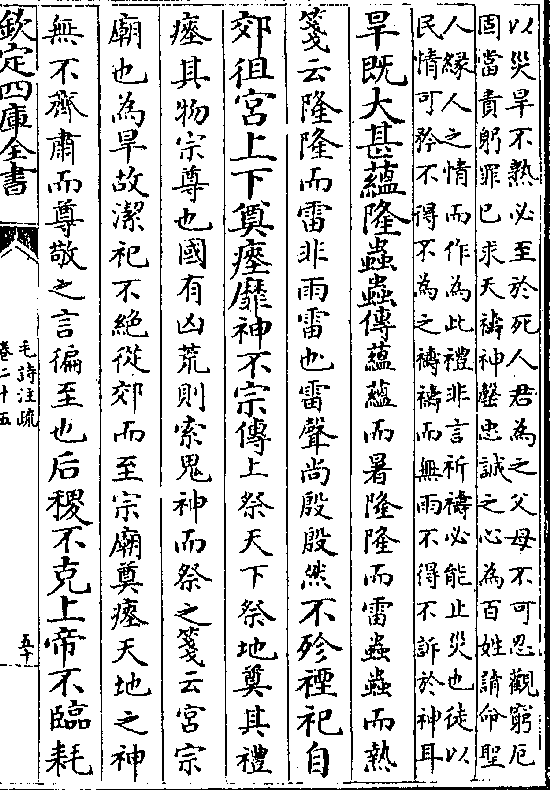 以災旱不熟必至於死人君為之父母不可忍觀窮厄
固當責躬罪己求天禱神罄忠誠之心為百姓請命聖
人緣人之情而作為此禮非言祈禱必能止災也徒以
民情可矜不得不為之禱禱而無雨不得不訴於神耳
旱既大甚蘊隆蟲蟲傳蘊蘊而暑隆隆而雷蟲蟲而熱
箋云隆隆而雷非雨雷也雷聲尚殷殷然不殄禋祀自
郊徂宮上下奠瘞靡神不宗傳上祭天下祭地奠其禮
瘞其物宗尊也國有凶荒則索鬼神而祭之箋云宮宗
廟也為旱故潔祀不絶從郊而至宗廟奠瘞天地之神
無不齊肅而尊敬之言徧至也后稷不克上帝不臨耗
欽定四庫全書
毛詩注疏
卷二十五
五十